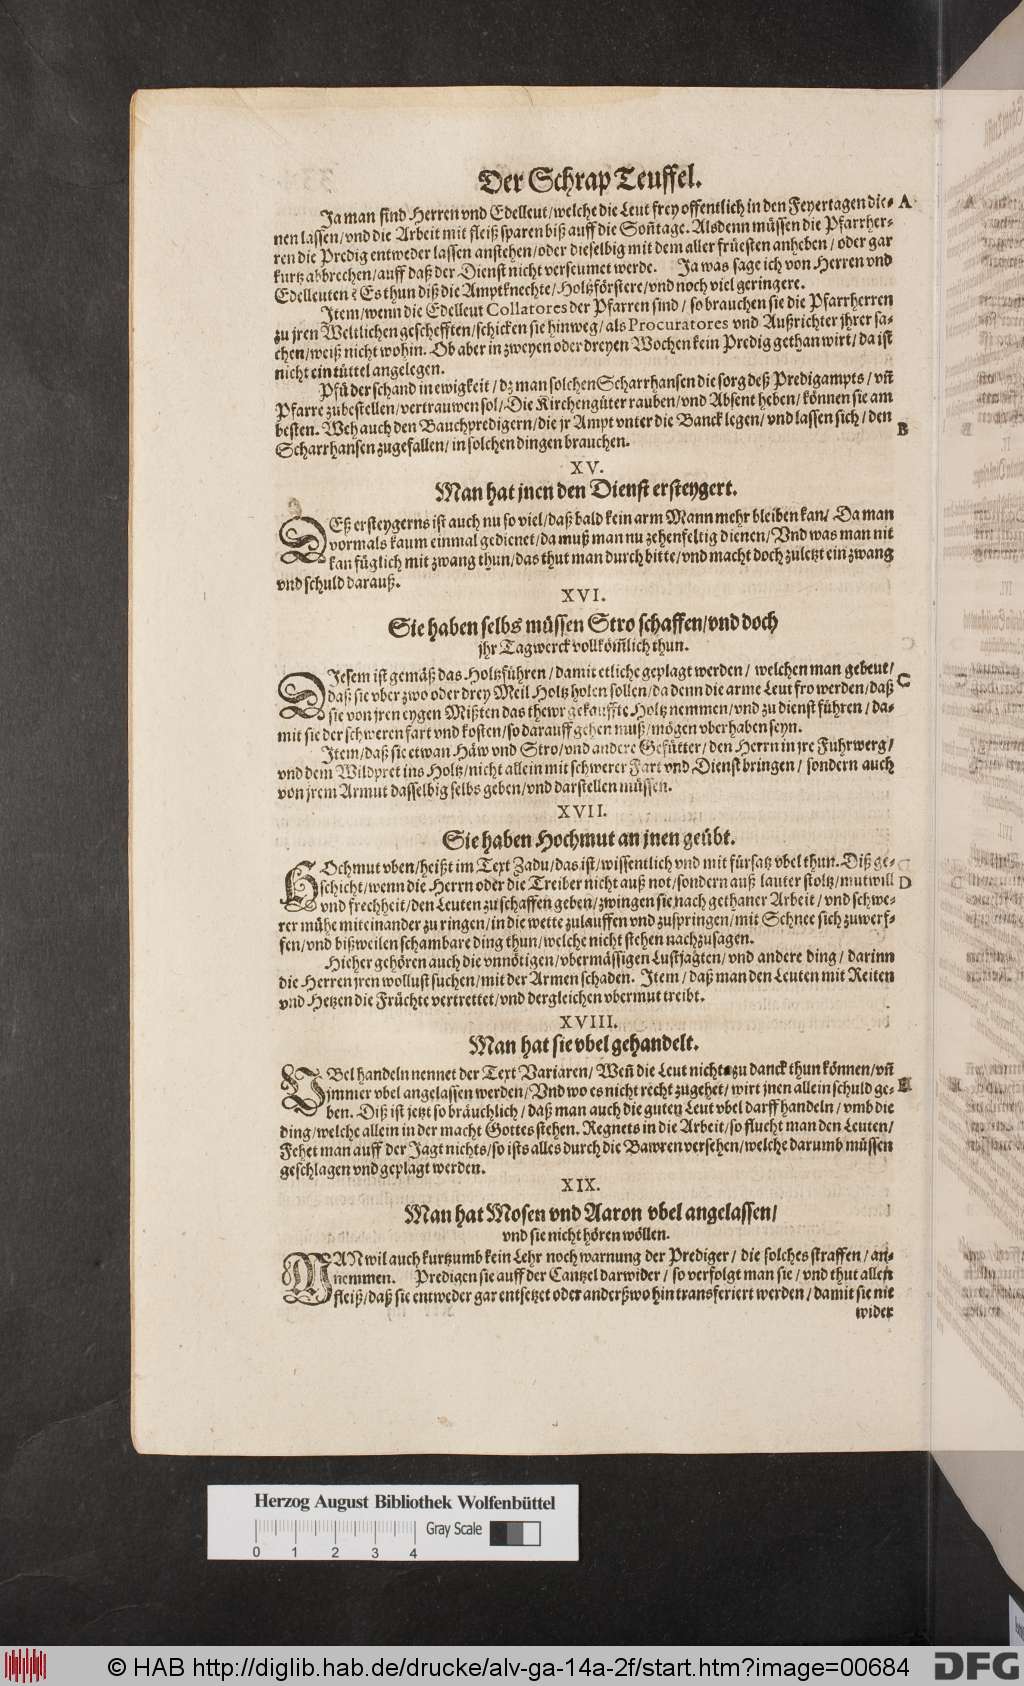 Der Schrap Teuffel.
Ja man find Herren vnd Edelleut/welche die Leut frey offentlich in den Feyertagen die- A
nen lassen/vnd die Arbeit mit fleiß sparen biß auff die Soñtage. Alsdenn müssen die Pfarrher-
ren die Predig entweder lassen anstehen/oder dieselbig mit dem aller früesten anheben/ oder gar
kurtz abbrechen/auff daß der Dienst nicht verseumet werde. Ja was sage ich von Herren vnd
Edelleuten? Es thun diß die Amptknechte/Holtzförstere/vnd noch viel geringere.
Item/wenn die Edelleut Collatores der Pfarren sind/ so brauchen sie die Pfarrherren
zu jren Weltlichen geschefften/schicken sie hinweg/als Procuratores vnd Außrichter jhrer sa-
chen/weiß nicht wohin. Ob aber in zweyen oder dreyen Wochen kein Predig gethan wirt/da ist
nicht ein tüttel angelegen.
Pfü der schand in ewigkeit/ dz man solchen Scharrhansen die sorg deß Predigampts/ vñ
Pfarre zubestellen/vertrauwen sol/Die Kirchengüter rauben/vnd Absent heben/ können sie am
besten. Weh auch den Bauchpredigern/die jr Ampt vnter die Banck legen/ vnd lassen sich/ den B
Scharrhansen zugefallen/ in solchen dingen brauchen.
XV.
Man hat jnen den Dienst ersteygert.
DEß ersteygerns ist auch nu so viel/daß bald kein arm Mann mehr bleiben kan/ Da man
vormals kaum einmal gedienet/da muß man nu zehenfeltig dienen/Vnd was man nit
kan füglich mit zwang thun/das thut man durch bitte/vnd macht doch zuletzt ein zwang
vnd schuld darauß.
XVI.
Sie haben selbs müssen Stro schaffen/vnd doch
jhr Tagwerck vollköm̃lich thun.
DIesem ist gemäß das Holtzführen/ damit ettliche geplagt werden/ welchen man gebeut/
daß sie vber zwo oder drey Meil Holtz holen sollen/da denn die arme Leut fro werden/daß C
sie von jren eygen Mißten das thewr gekauffte Holtz nemmen/vnd zu dienst führen/ da-
mit sie der schweren fart vnd kosten/so darauff gehen muß/mögen vberhaben seyn.
Item/daß sie etwan Häw vnd Stro/vnd andere Gefütter/den Herrn in jre Fuhrwerg/
vnd dem Wildpret ins Holtz/nicht allein mit schwerer Fart vnd Dienst bringen/ sondern auch
von jrem Armut dasselbig selbs geben/vnd darstellen müssen.
XVII.
Sie haben Hochmut an jnen geübt.
HOchmut vben/heißt im Text Zadu/das ist/wissentlich vnd mit fürsatz vbel thun. Diß ge-
schicht/wenn die Herrn oder die Treiber nicht auß not/sondern auß lauter stoltz/mutwill D
vnd frechheit/den Leuten zu schaffen geben/zwingen sie nach gethaner Arbeit/ vnd schwe-
rer mühe miteinander zu ringen/in die wette zulauffen vnd zuspringen/mit Schnee sich zuwerf-
fen/vnd bißweilen schambare ding thun/welche nicht stehen nachzusagen.
Hieher gehören auch die vnnötigen/vbermässigen Lustjagten/vnd andere ding/ darinn
die Herren jren wollust suchen/mit der Armen schaden. Item/ daß man den Leuten mit Reiten
vnd Hetzen die Früchte vertrettet/vnd dergleichen vbermut treibt.
XVIII.
Man hat sie vbel gehandelt.
VBel handeln nennet der Text Variaren/ Weñ die Leut nichts zu danck thun können/vñ
jmmer vbel angelassen werden/Vnd wo es nicht recht zugehet/wirt jnen allein schuld ge- E
ben. Diß ist jetzt so bräuchlich/ daß man auch die guten Leut vbel darff handeln/ vmb die
ding/welche allein in der macht Gottes stehen. Regnets in die Arbeit/so flucht man den Leuten/
Fehet man auff der Jagt nichts/so ists alles durch die Bawren versehen/welche darumb müssen
geschlagen vnd geplagt werden.
XIX.
Man hat Mosen vnd Aaron vbel angelassen/
vnd sie nicht hören wöllen.
MAN wil auch kurtzumb kein Lehr noch warnung der Prediger/ die solches straffen/ an-
nemmen. Predigen sie auff der Cantzel darwider/ so verfolgt man sie/ vnd thut allen
fleiß/daß sie entweder gar entsetzet oder anderßwo hin transferiert werden/ damit sie nit
wider
Herzog August Bibliothek Wolfenbüttel
Gray Scale
0 1 2 3 4
© HAB http://diglib.hab.de/drucke/alv-ga-14a-2f/start.htm?image=00684
DFG